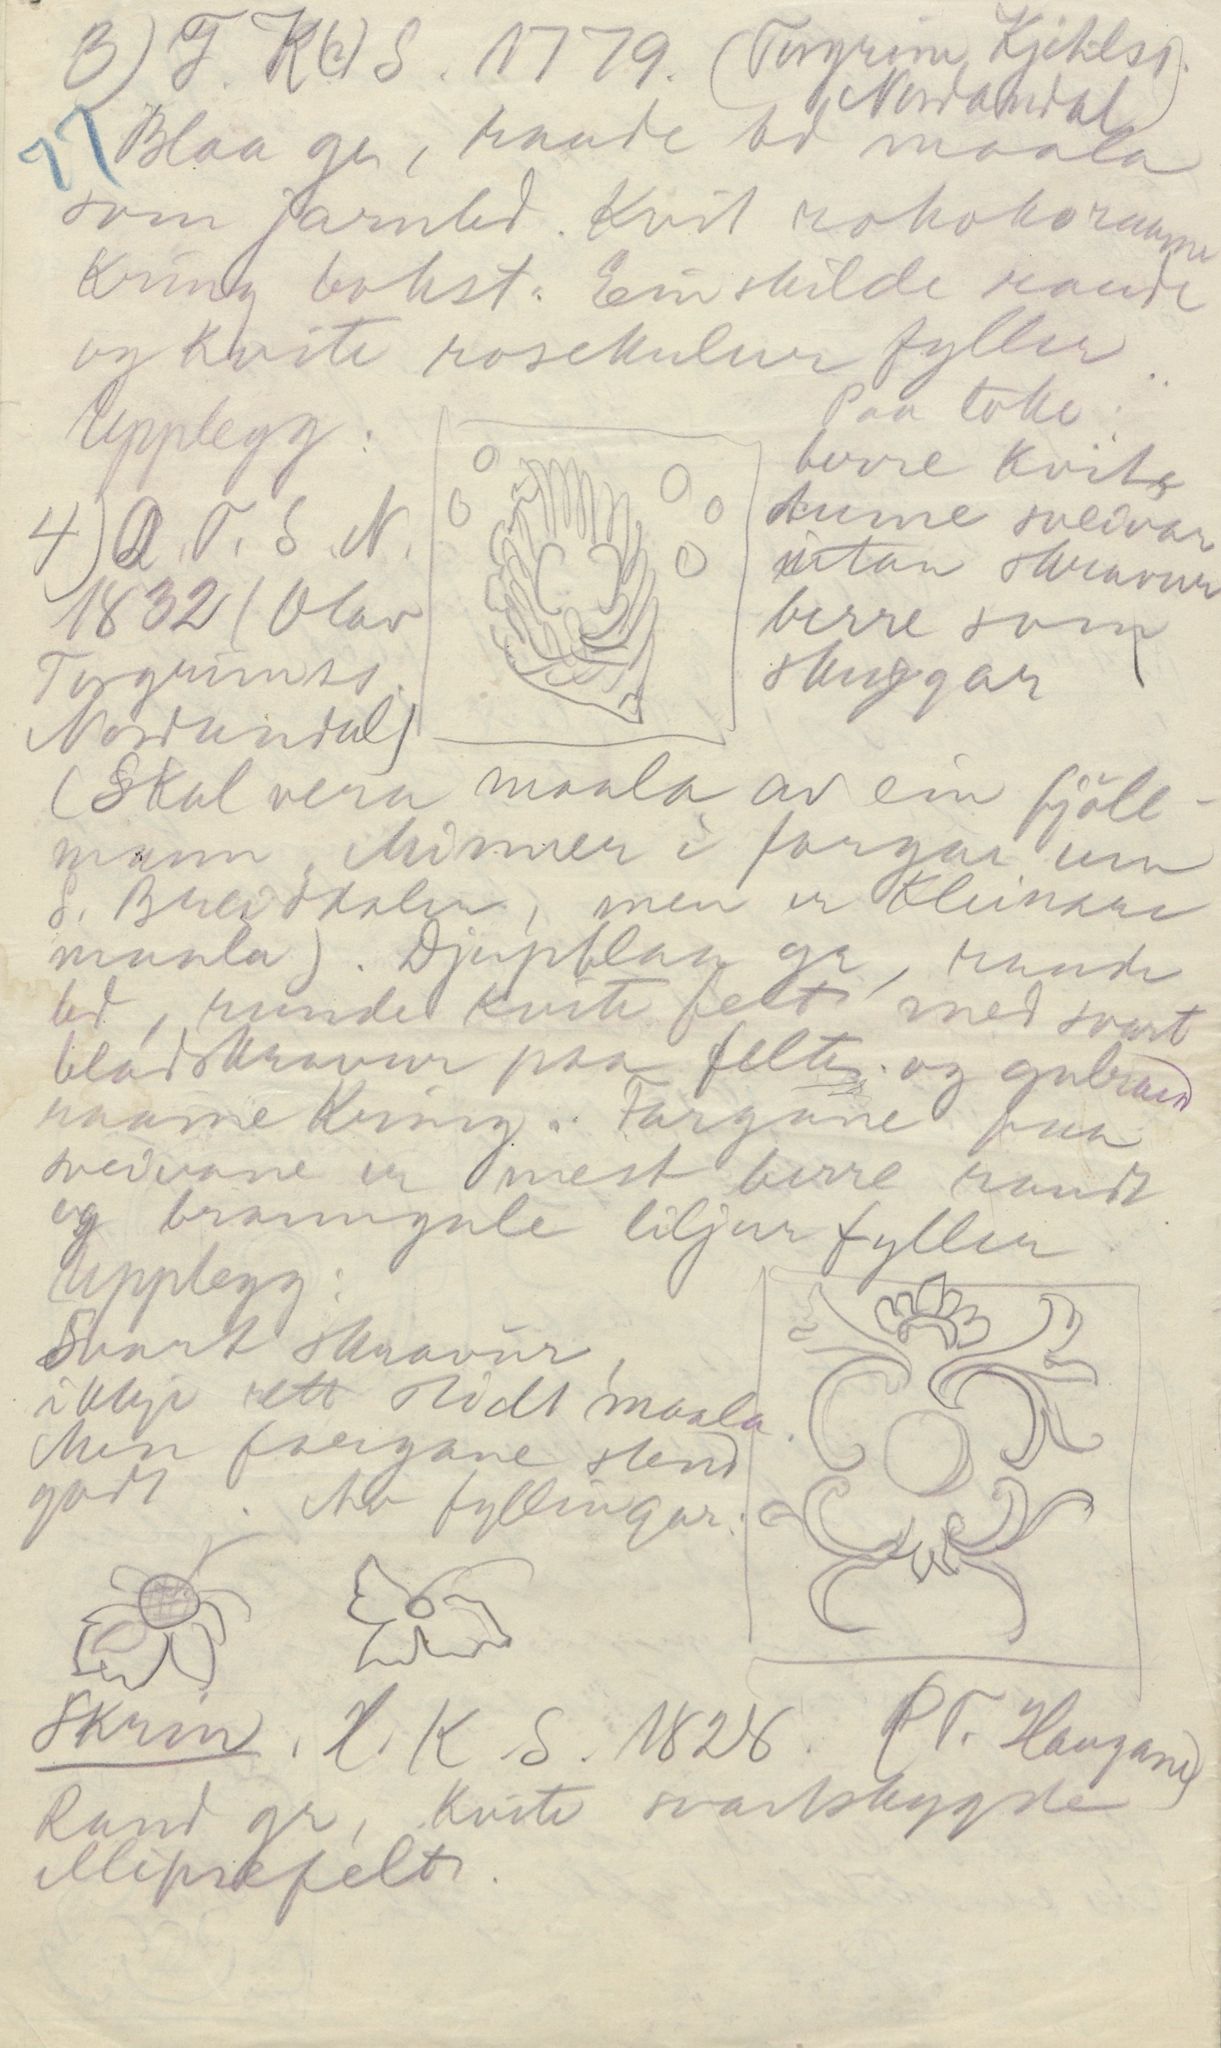 3) T. K(h) S. 1779. (Torgrim Kjihlss.
Nordandal)
77
Blaa gr, raude bd maala
som jarnbd. Kvit rokokoraame
Kring bokst. Einskilde raude
og Kvite rosekulur fyller.
Upplegg:
Paa loke:
berre Kvite
tume sveivar
utan skravur
berre som
skuggar
4) O. T. S. N.
1832 (Olav
Torgrimss.
Nordandal)
(Skal vera maala av ein fjöll-
mann. Minner i fargar um
S. Breiddalen, men er Kleinare
maala). Djupblaa gr, raude
bd, runde kvite felt med svart
bladskravur paa felte og gulraud
raame Kring. Fargane paa
sveivane er mest berre raudt
og bramgule liljur fyller.
Upplegg:
Svart skravur,
ikkje rett stidt maala.
Men fargane stend
godt. Av fyllingar:
Skrin. H. K. S. 1828. (T. Haugane)
Raud gr, Kvite svartskygde